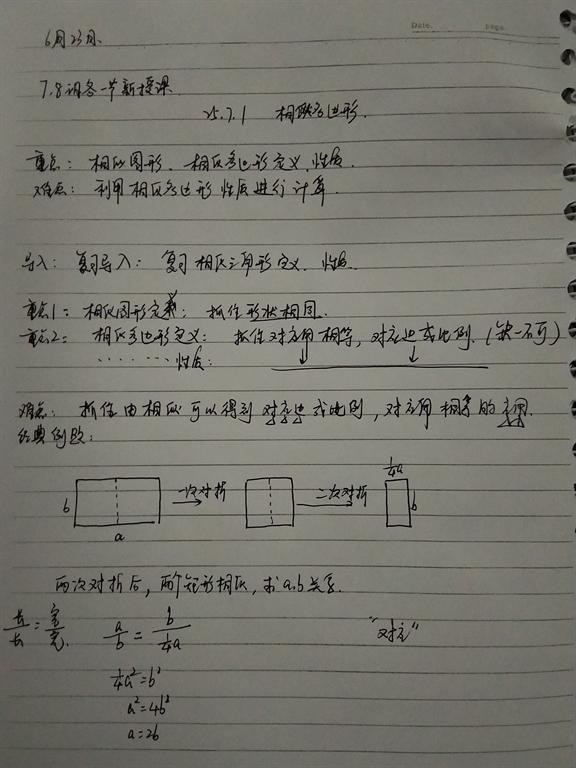 Date. page.
6月23日.
7.8调各一节新授课.
25.7.1 相似多边形.
重点: 相似图形、相似多边形定义、性质.
难点: 利用相似多边形性质进行计算.
导入: 复习导入: 复习相似三角形定义、性质.
重点1: 相似图形定义: 抓住形状相同.
重点2: 相似多边形定义: 抓住对应角相等, 对应边成比例. (缺一不可)
...... 性质:
难点: 抓住由相似可以得到对应边成比例, 对应角相等的应用.
经典例题:
b a 一次对折 二次对折 ¼a b
两次对折后, 两个矩形相似, 求a.b关系.
长/长 = 宽/宽. a/b = b/¼a "对应"
¼a²=b²
a²=4b²
a=2b